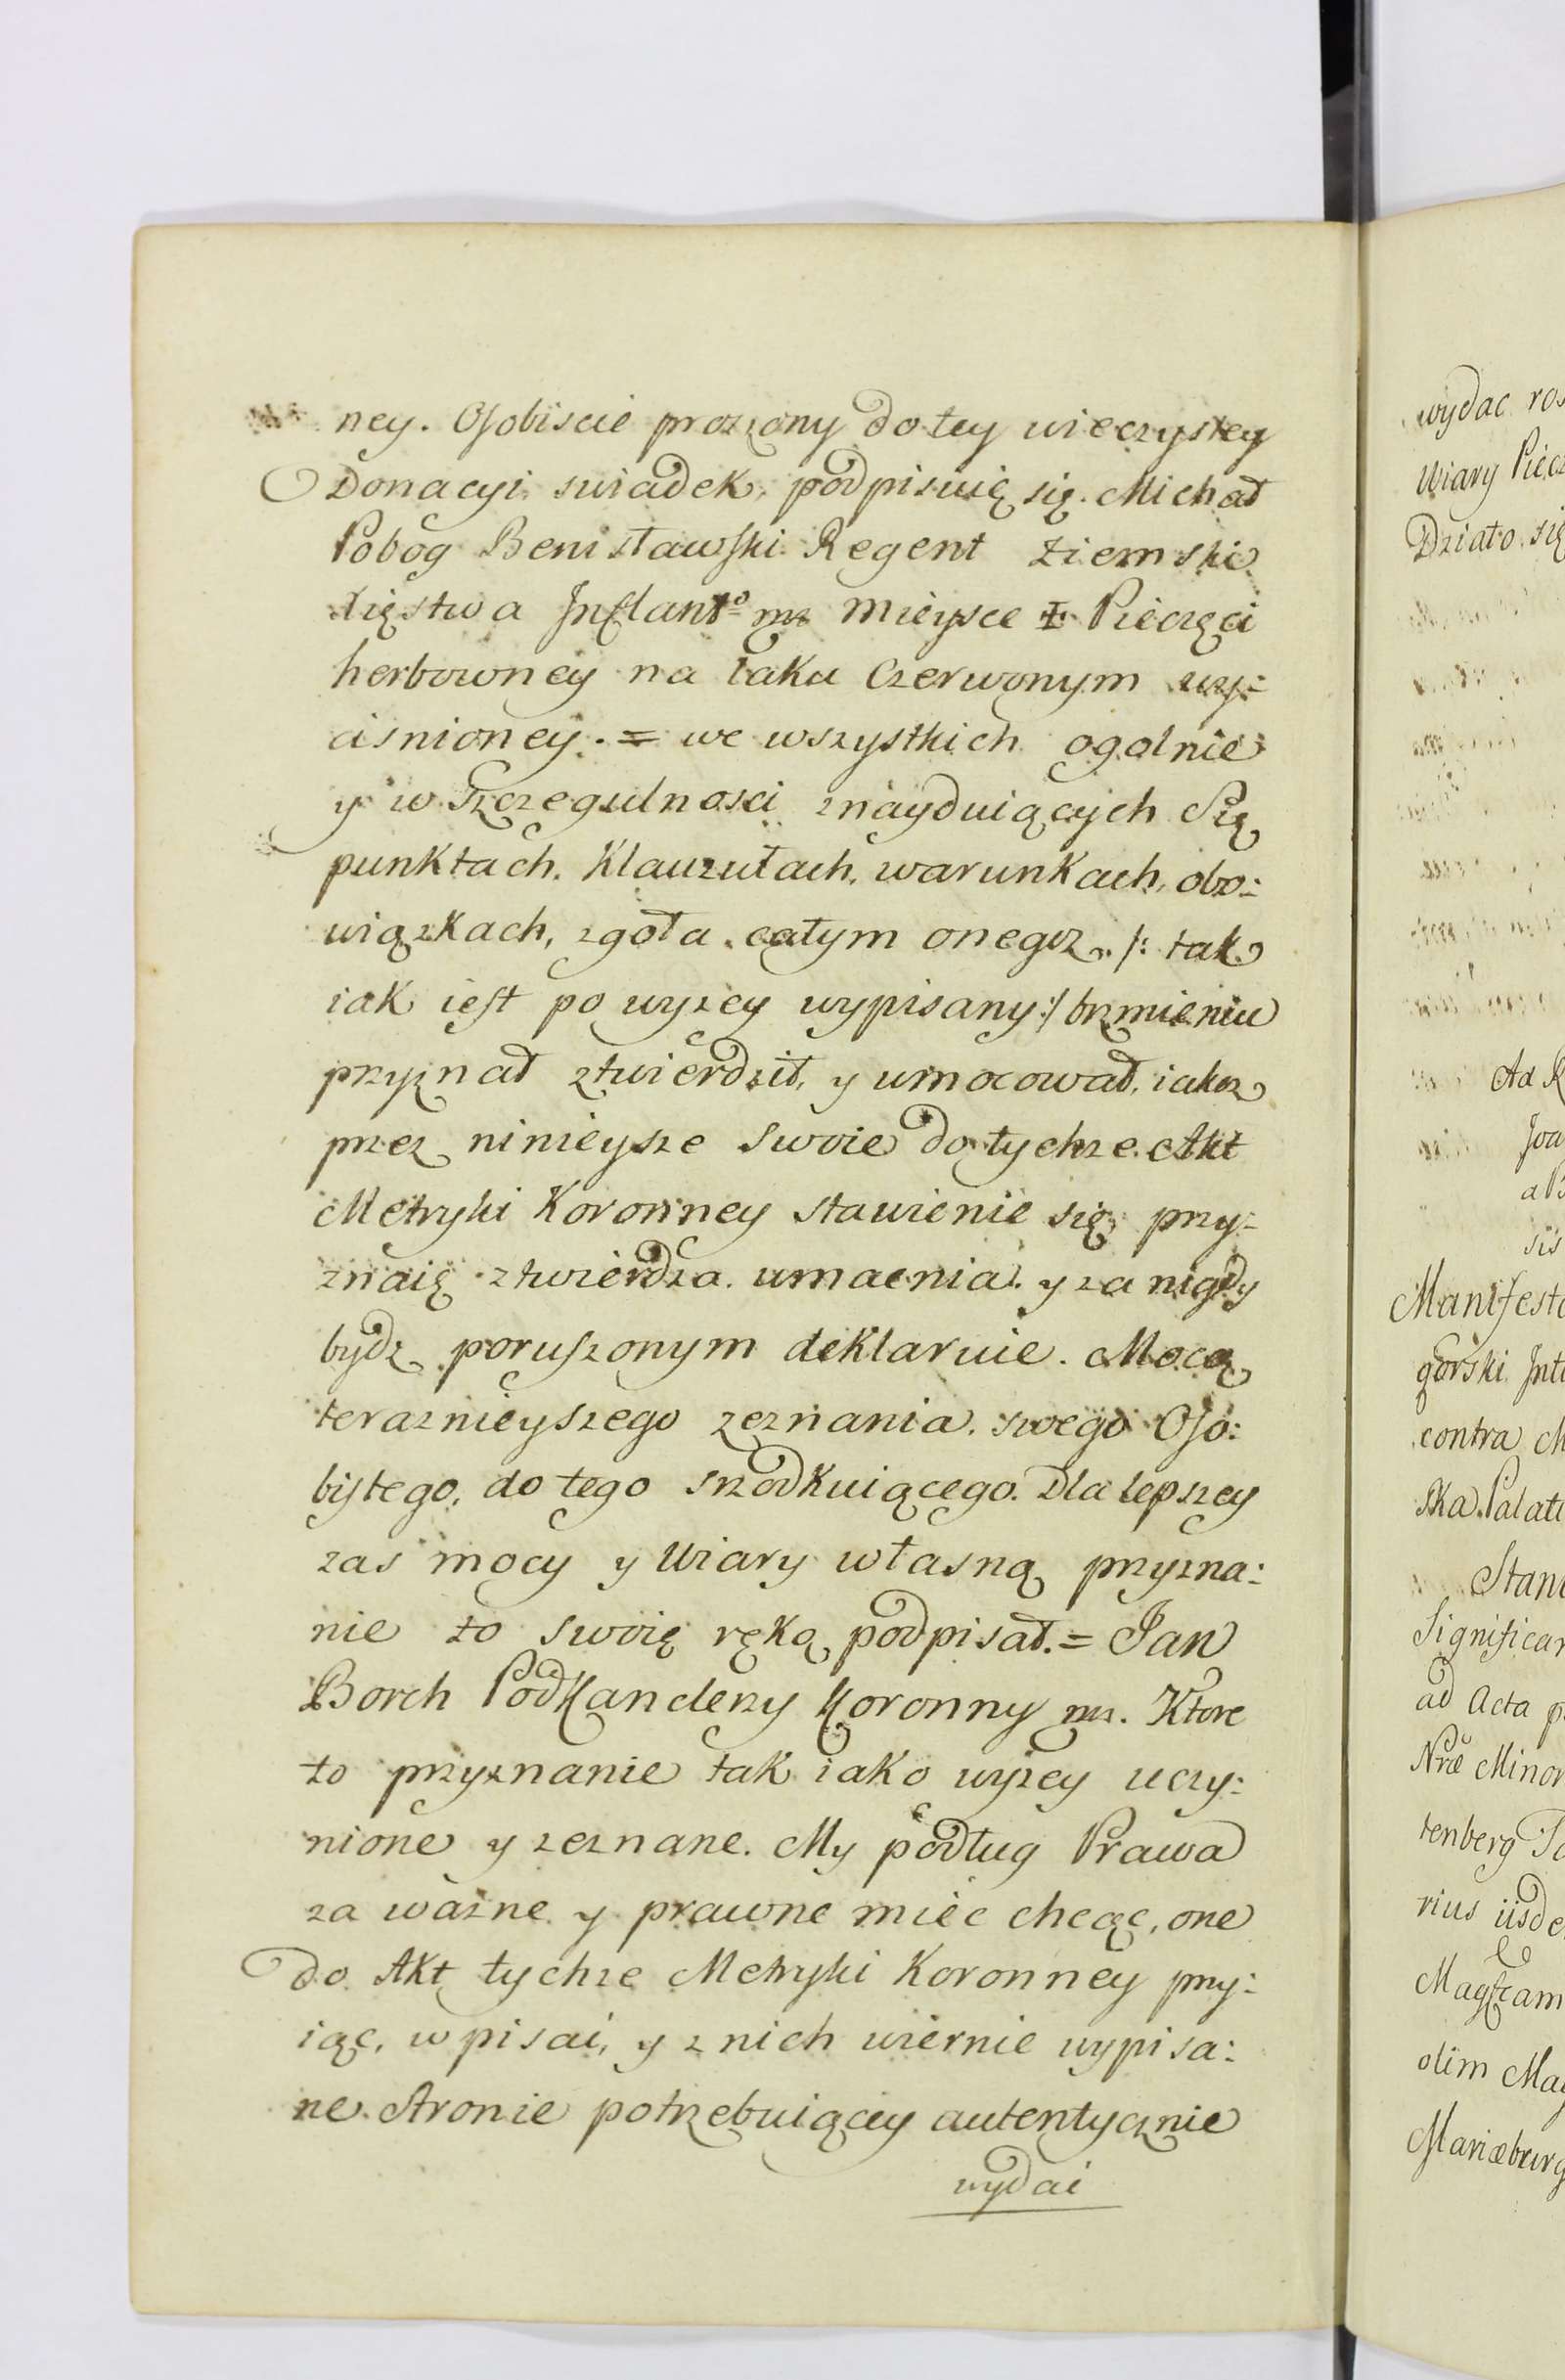 ney. Osobiscie proszony do tey wieczystey
Donacyi swiadek, podpisuię się. Michał
Pobog Benisławski Regent Ziemski
Xięstwa Inflantº mz Mieysce Pieczęci
herbowney na laku Czerwonym wy:
cisnioney. = we wszystkich ogolnie
y w szczegulnosci znayduiących Się
punktach. Klauzułach, warunkach, obo:
wiązkach, zgoła całym onegoz /: tak
iak iest po wyzey wypisany :/ brzmieniu
przyznał ztwierdził, y umocował, iakoz
przez ninieysze swoie do tychze Akt
Metryki Koronney stawienie się przy:
znaię ztwierdza. umacnia. y za nigdy
bydz poruszonym deklaruie. Mocą
teraznieyszego zeznania. swego Oso:
bistego, do tego srzodkuiącego. Dla lepszey
zas mocy y Wiary własną przyzna:
nie to swoię ręką podpisał. = Jan
Borch PodKanclerzy Koronny mz. Ktore
to przyznanie tak iako wyzey uczy:
nione y zeznane. My podług Prawa
za wazne y prawne miec chcąc, one
do Akt tychze Metryki Koronney przy:
iąc, wpisai, y z nich wiernie wypisa:
ne. Stronie potrzebuiącey autentycznie
wydai
wydac
Wiary
Działo się
Ad
Manifest
gorski
contra
ska Palati
ad Acta
Nræ Minor
tenberg
rius
olim